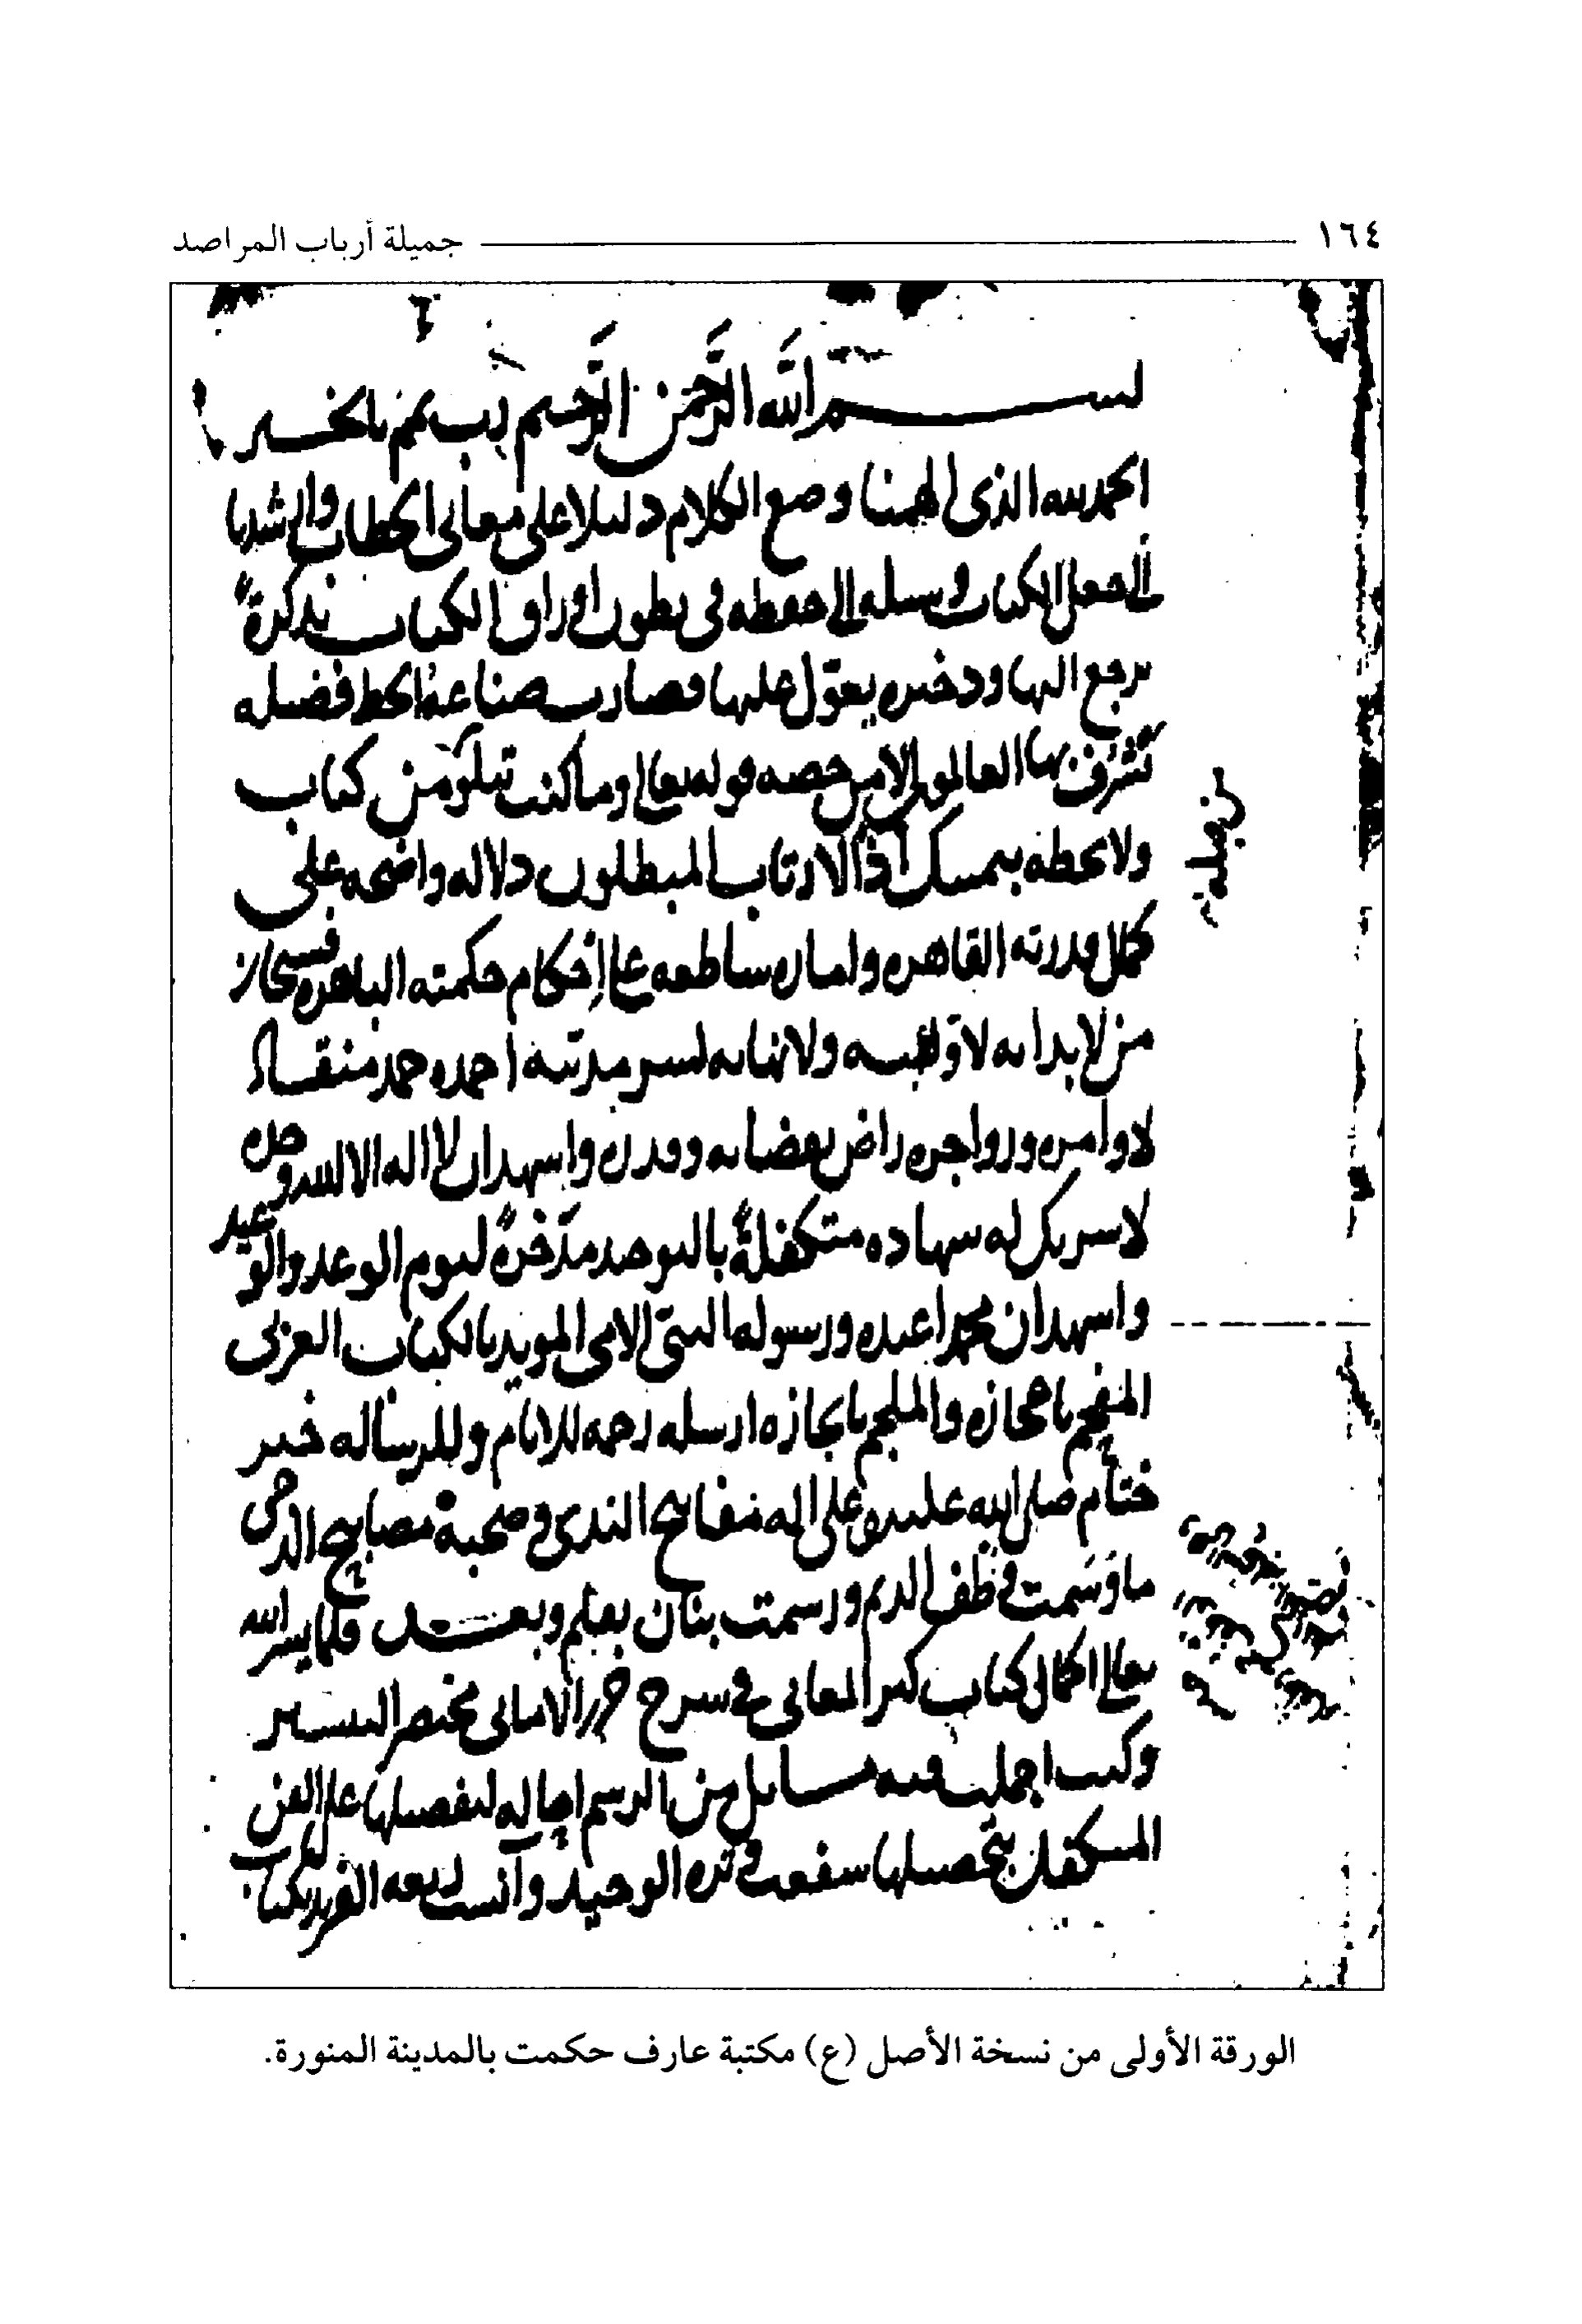 ١٦٤ جميلة أرباب المراصد
بسم الله الرحمن الرحيم رب تمم بالخير
الحمد لله الذى الهمنا وضع الكلام دليلا على معانى الخطاب وارشدنا
الى جعل الكتاب وسيله الى حفظه فى بطون اوراق الكتاب تذكرةً
يرجع اليها وذخيره يعوّل عليها فصارت صناعة الخط فضيله
تشرف بها العالمون الا من خصه قوله تعالى وما كنت تتلو من كتاب
ولا تخطه بيمينك اذا لارتاب المبطلون دلاله واضحه على
كمال قدرته القاهره واماره ساطعه على إحكام حكمته الباهره فسبحان
من لا بدايه لاوليته ولا نهايه لسرمديته احمده حمد منقاد
لاوامره وزواجره راض بقضايه وقدره واشهد ان لا اله الا الله وحده
لا شريك له شهاده متكفلةً بالتوحيد مدّخرةً ليوم الوعد والوعيد
واشهد ان محمدا عبده ورسوله النبى الامى المويد بالكتاب العربى
المفحم باعجازه والملجم بايجازه ارسله رحمه للانام وللرساله خير
ختام صلى الله عليه وعلى اله مفاتيح الندى وصحبه مصابيح الدجى
ما وسمت ورسمت بنان بقلم وبعد فلما يسر الله
تعالى اكمال كتاب كنز المعانى فى شرح حرز الامانى مختصر التيسير
وكنت اجملت فيه مسايل من الرسم احاله لتفصيلها على الفن
المتكفل بتحصيلها شفعت وتره الوحيد وآنست ربعه الفريد بكتاب
الورقة الأولى من نسخة الأصل (ع) مكتبة عارف حكمت بالمدينة المنورة.